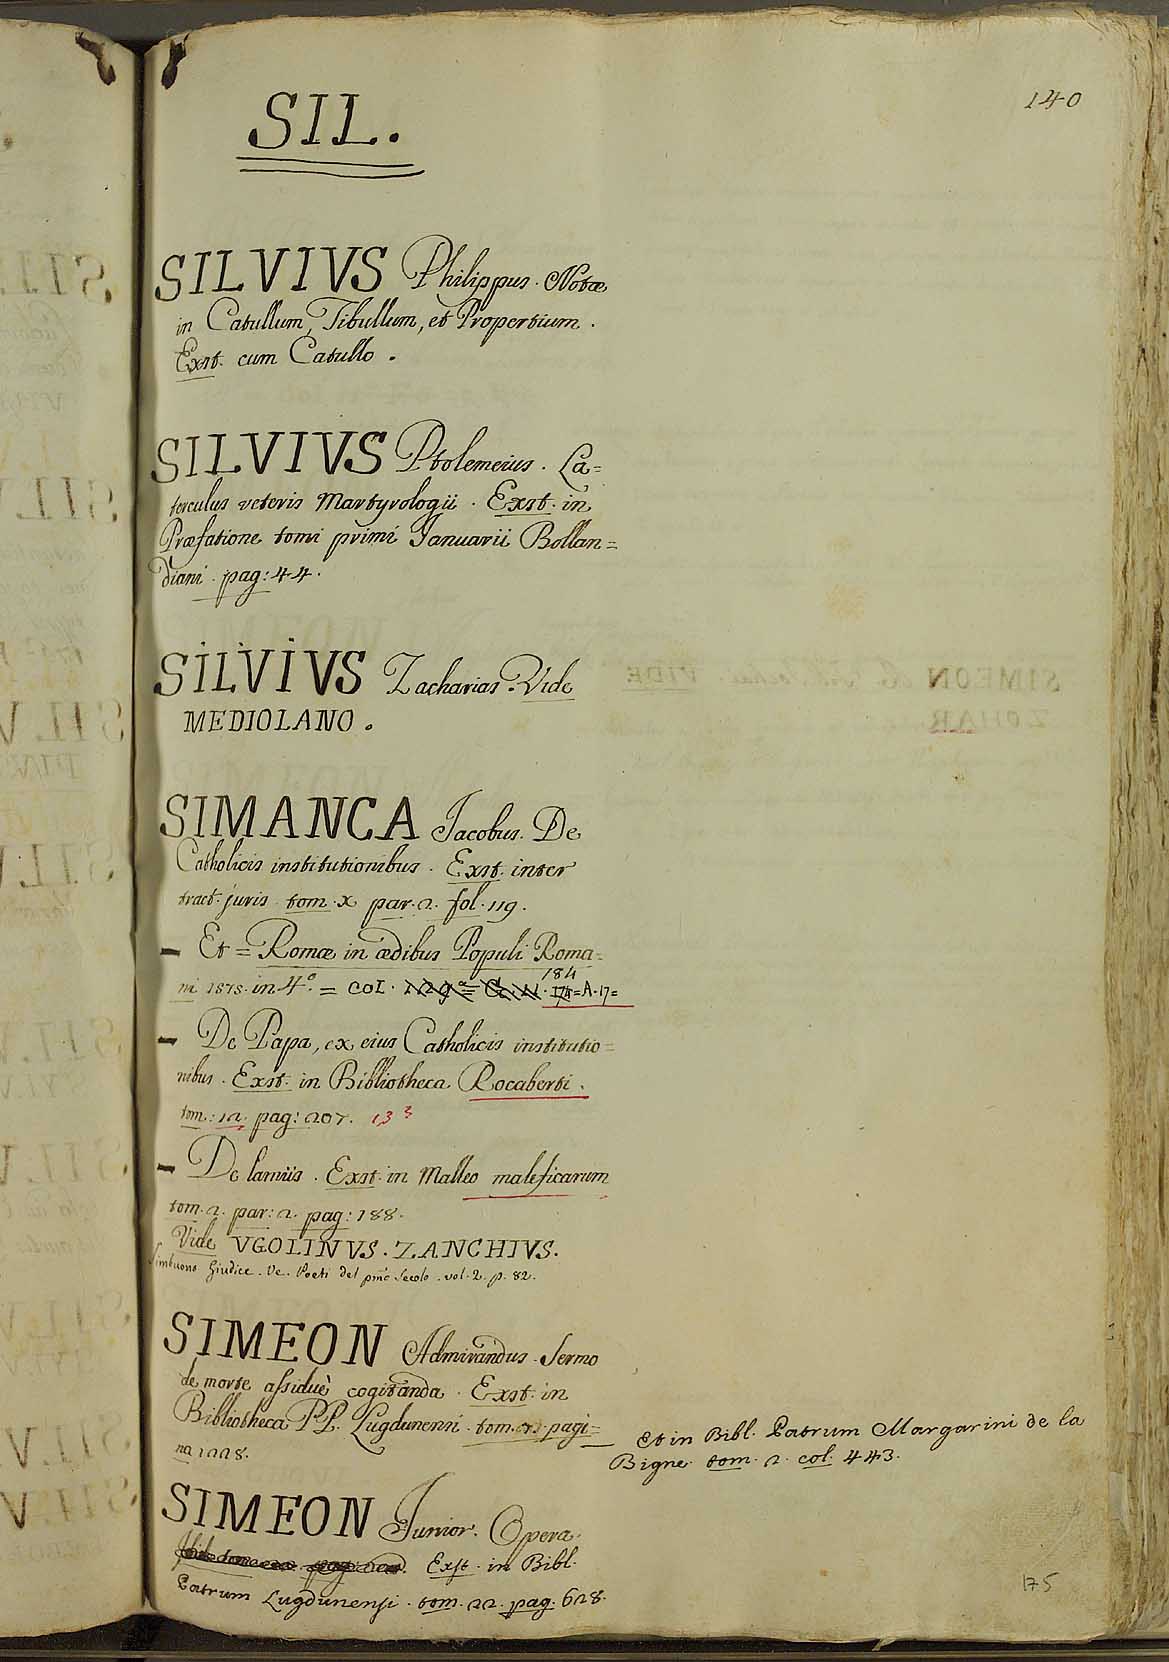 140
SIL.
SILVIVS Philippus. Notæ
in Catullum, Tibullum, et Propertium.
Exst. cum Catullo.
SILVIVS Ptolemeius. La=
terculus veteris Martyrologii. Exst. in
Præfatione tomi primi Januarii Bollan=
diani. pag: 44.
SILVIVS Zacharias. Vide
MEDIOLANO.
SIMANCA Jacobus. De
Catholicis institutionibus. Exst. inter
tract. juris tom. X par. 2. fol. 119.
- Et = Romæ in ædibus Populi Roma=
ni in 4.° = COL. 184 = A. 17 =
- De Papa, ex eius Catholicis institutio=
nibus. Exst. in Bibliotheca Rocaberti.
tom: 12. pag: 207. 13
- De lamiis. Exst. in Malleo maleficarum
tom. 2. par: 2. pag: 188.
Vide VGOLINVS. ZANCHIVS.
Simbuono Giudice. Ve. Poeti del Secolo. vol. 2. p. 82.
SIMEON Admirandus. Sermo
de morte assiduè cogitanda. Exst. in
Bibliotheca PP. Lugdunensi. tom. pagi=
na
- Et in Bibl. Patrum Margarini de la
Bigne. tom. 2. col. 443.
SIMEON Junior. Opera.
Exst. in Bibl.
Patrum Lugdunensi. tom. 22. pag. 628.
175